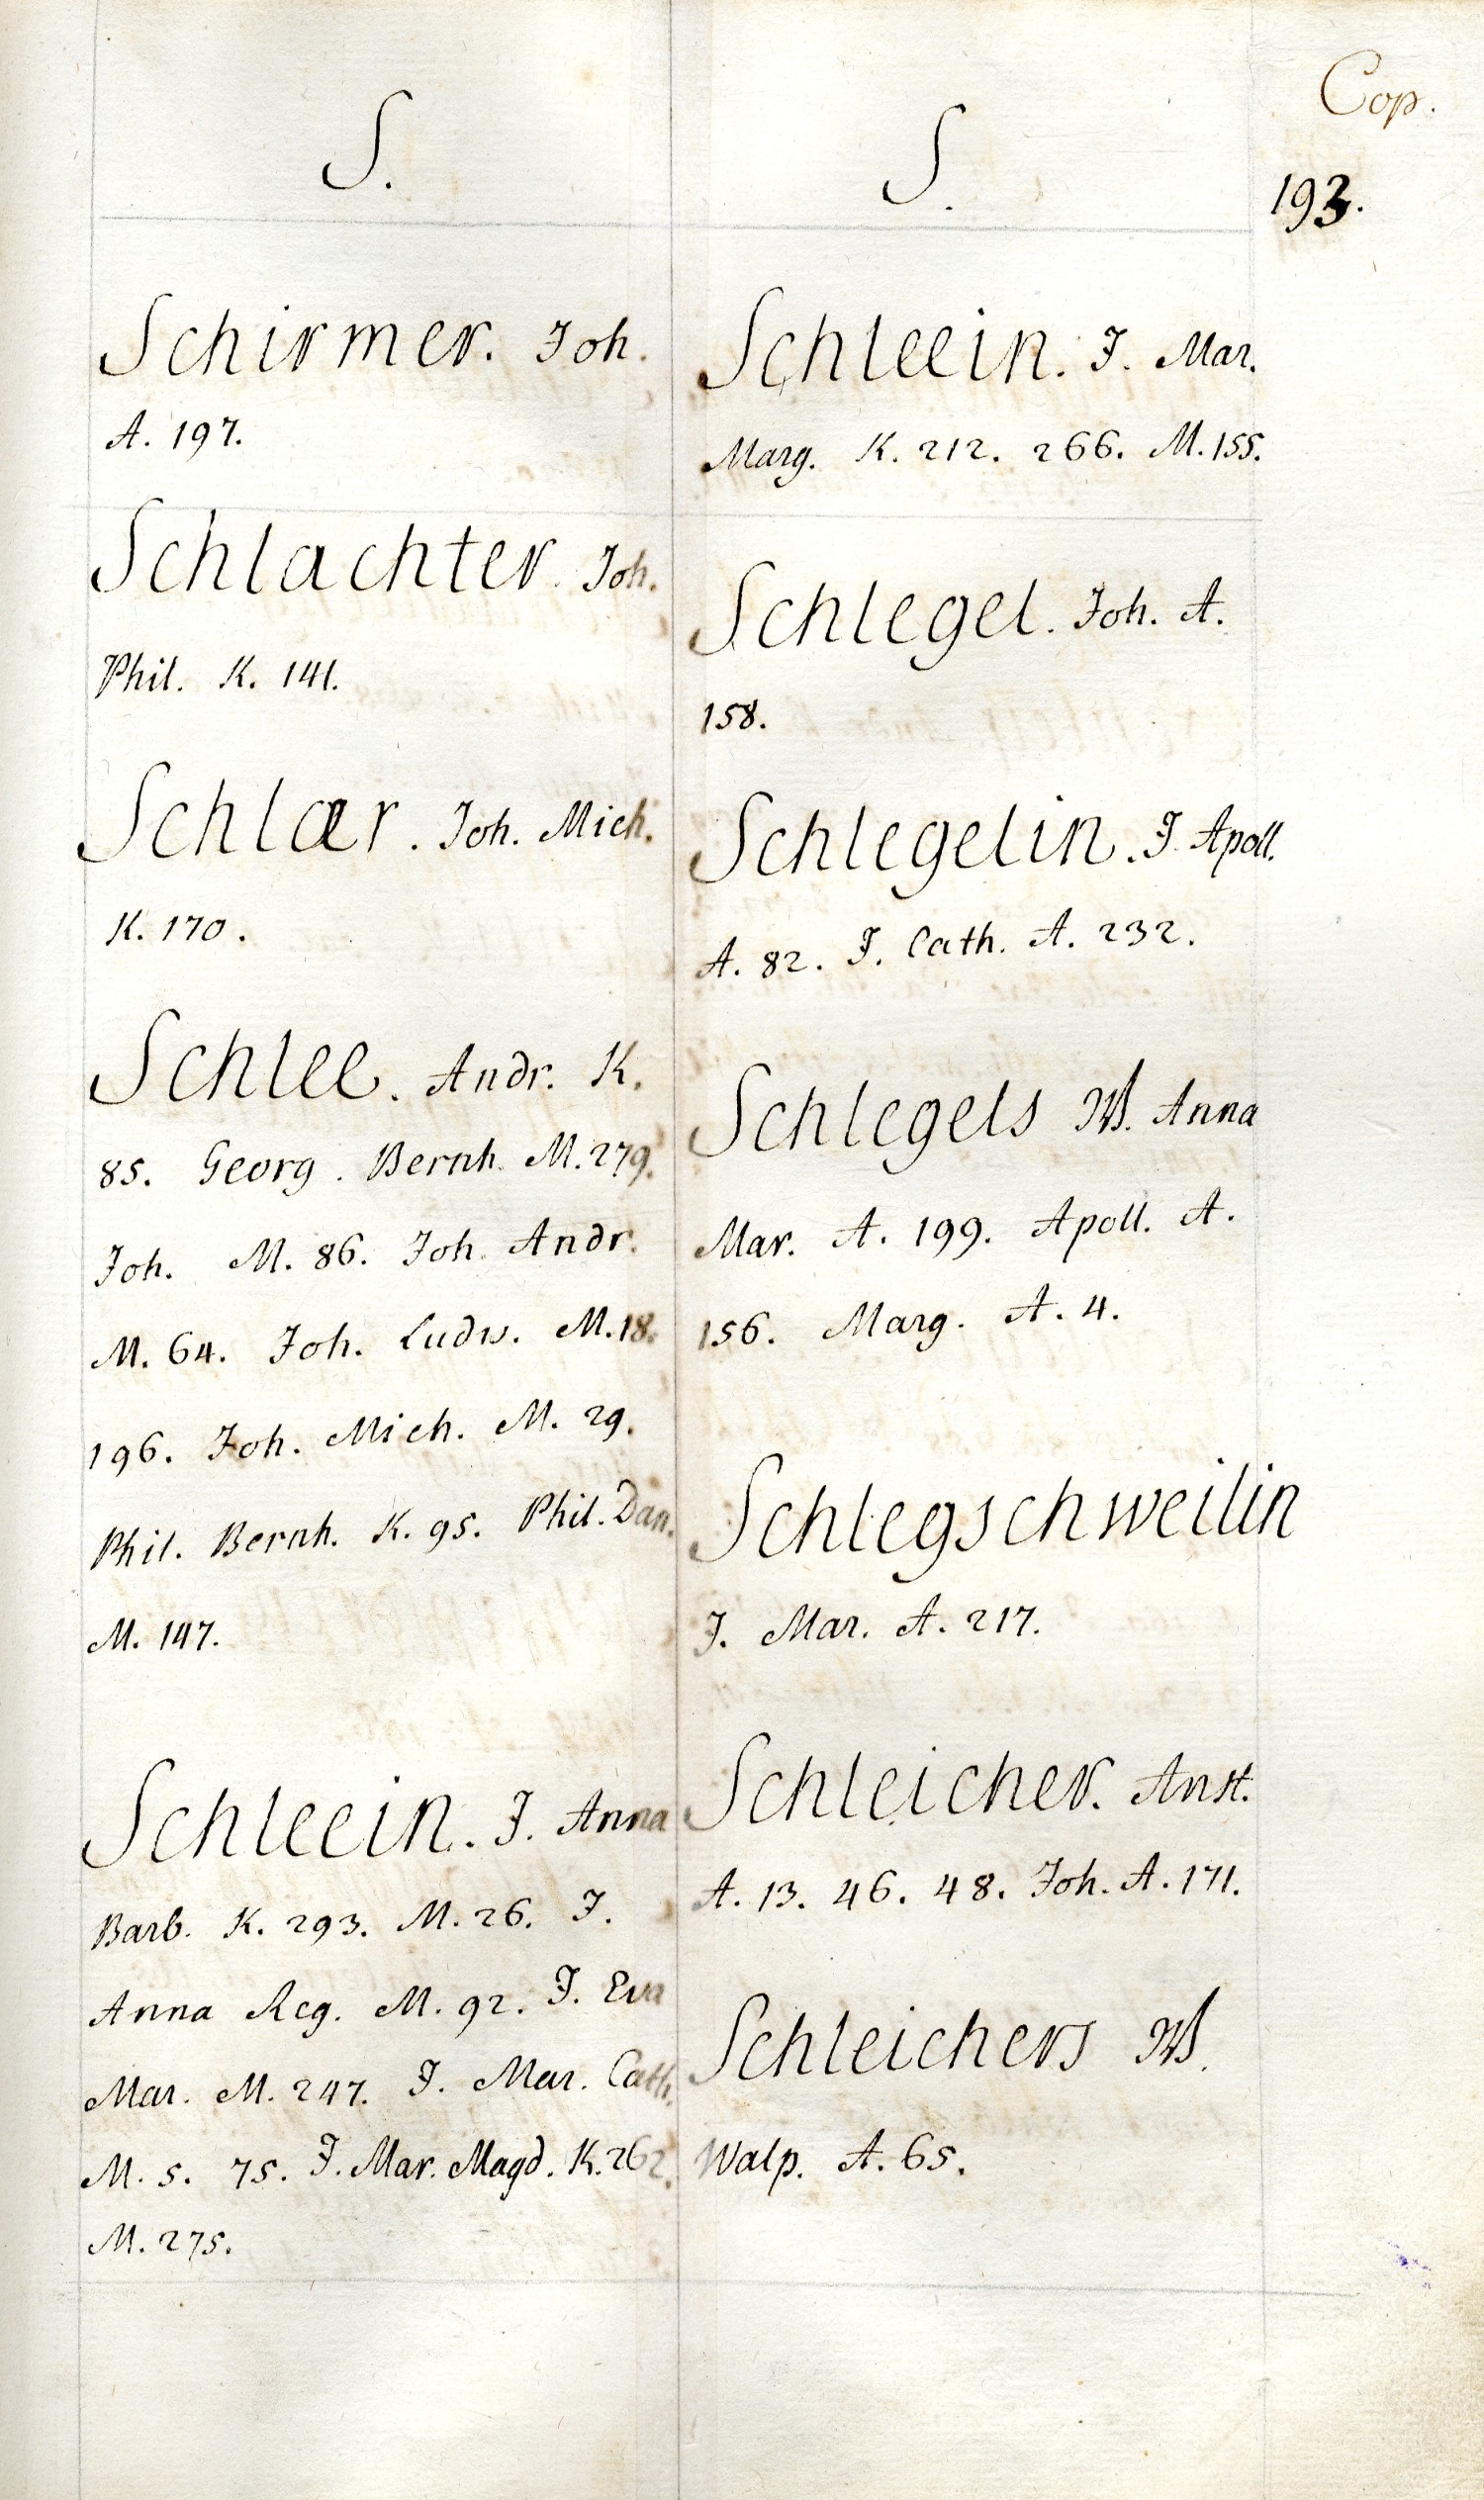 Cop.
193.
S.
Schirmer. Joh.
A. 197.
Schlachter. Joh.
Phil. K. 141.
Schlær. Joh. Mich.
K. 170.
Schlee. Andr. K.
85. Georg. Bernh. M. 279.
Joh. M. 86. Joh. Andr.
M. 64. Joh. Ludw. M. 18.
196. Joh. Mich. M. 29.
Phil. Bernh. K. 95. Phil. Dan.
M. 147.
Schleein. J. Anna
Barb. K. 293. M. 26. J.
Anna Reg. M. 92. J. Eva
Mar. M. 247. J. Mar. Cath.
M. 5. 75. J. Mar. Magd. K. 262.
M. 275.
S.
Schleein. J. Mar.
Marg. K. 212. 266. M. 155.
Schlegel. Joh. A.
158.
Schlegelin. J. Apoll.
A. 82. J. Cath. A. 232.
Schlegels W. Anna
Mar. A. 199. Apoll. A.
156. Marg. A. 4.
Schlegschweilin
J. Mar. A. 217.
Schleicher. Anst.
A. 13. 46. 48. Joh. A. 171.
Schleichers W.
Walp. A. 65.